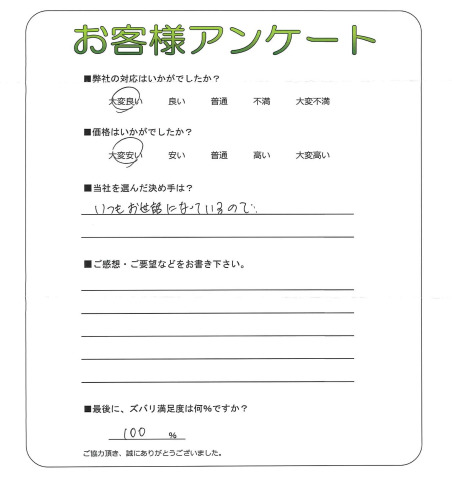 お客様アンケート
■弊社の対応はいかがでしたか？
大変良い 良い 普通 不満 大変不満
■価格はいかがでしたか？
大変安い 安い 普通 高い 大変高い
■当社を選んだ決め手は？
いつもお世話になっているので、
■ご感想・ご要望などをお書き下さい。
■最後に、ズバリ満足度は何%ですか？
100 %
ご協力頂き、誠にありがとうございました。